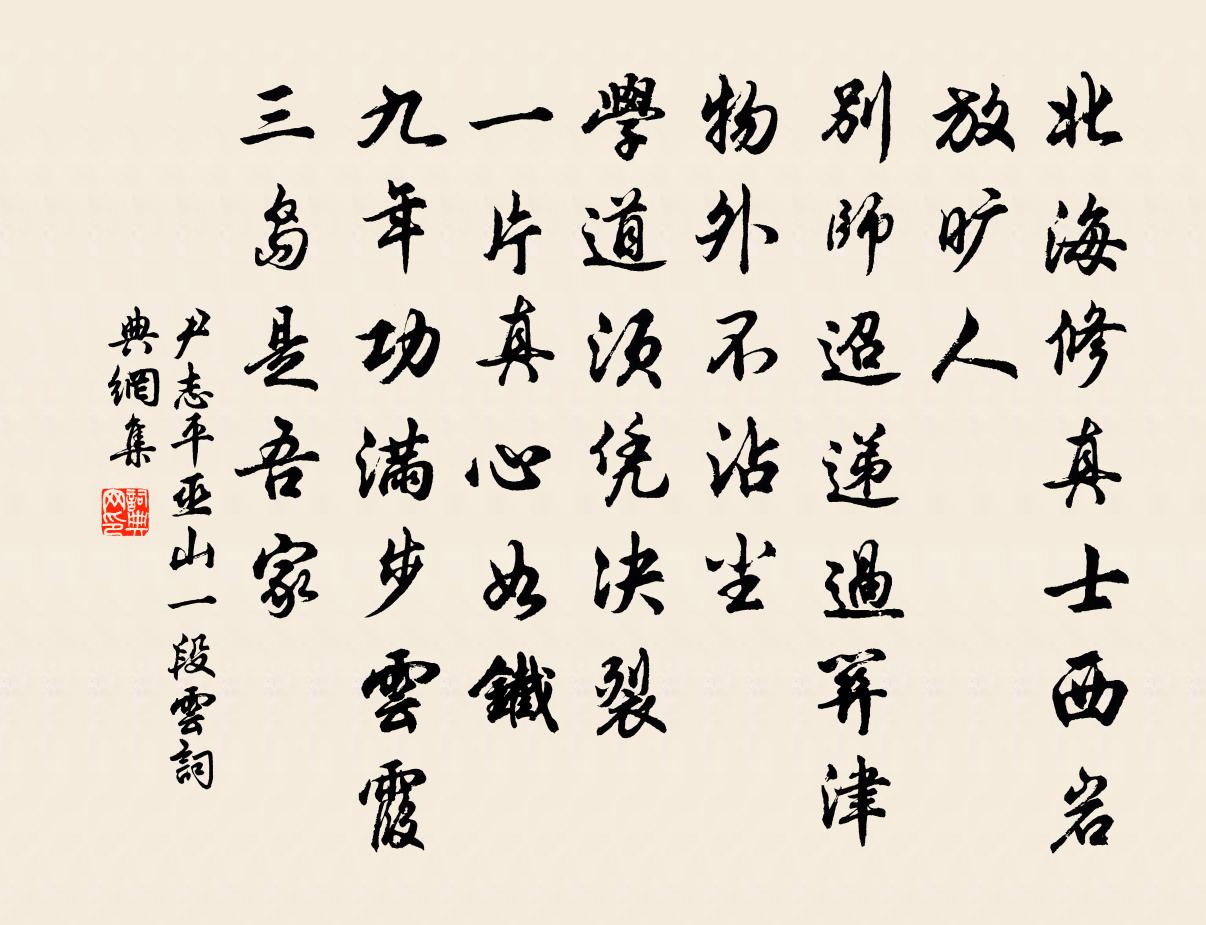 北海修真士西岩
放旷人
別師迢递過關津
物外不沾尘
學道须凭决裂
一片真心如鐵
九年功满步雲霞
三岛是吾家
尹志平巫山一段雲詞
典網集
詞典网印